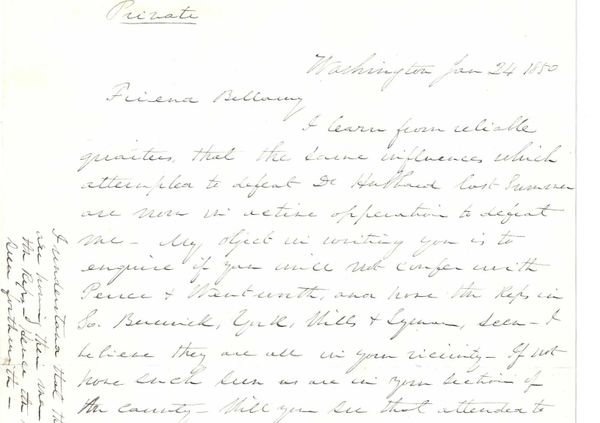 Private
Washington Jan 24 1850
Friend Bellamy
I learn from reliable
quarters, that the same influences which
attempted to defeat Dr Hubbard last Summer
are now in active opperation to defeat
me - My object in writing you is to
enquire if you will not confer with
Peirce & Wentworth, and have the Reps in
So. Berwick, York, Wells & Lyman, seen - I
believe they are all in your vicinity - If not
have such seen as are in your section of
the county - Will you see that attended to
I understand that th
are from their me
the Reps - hence the
seen forthwith -